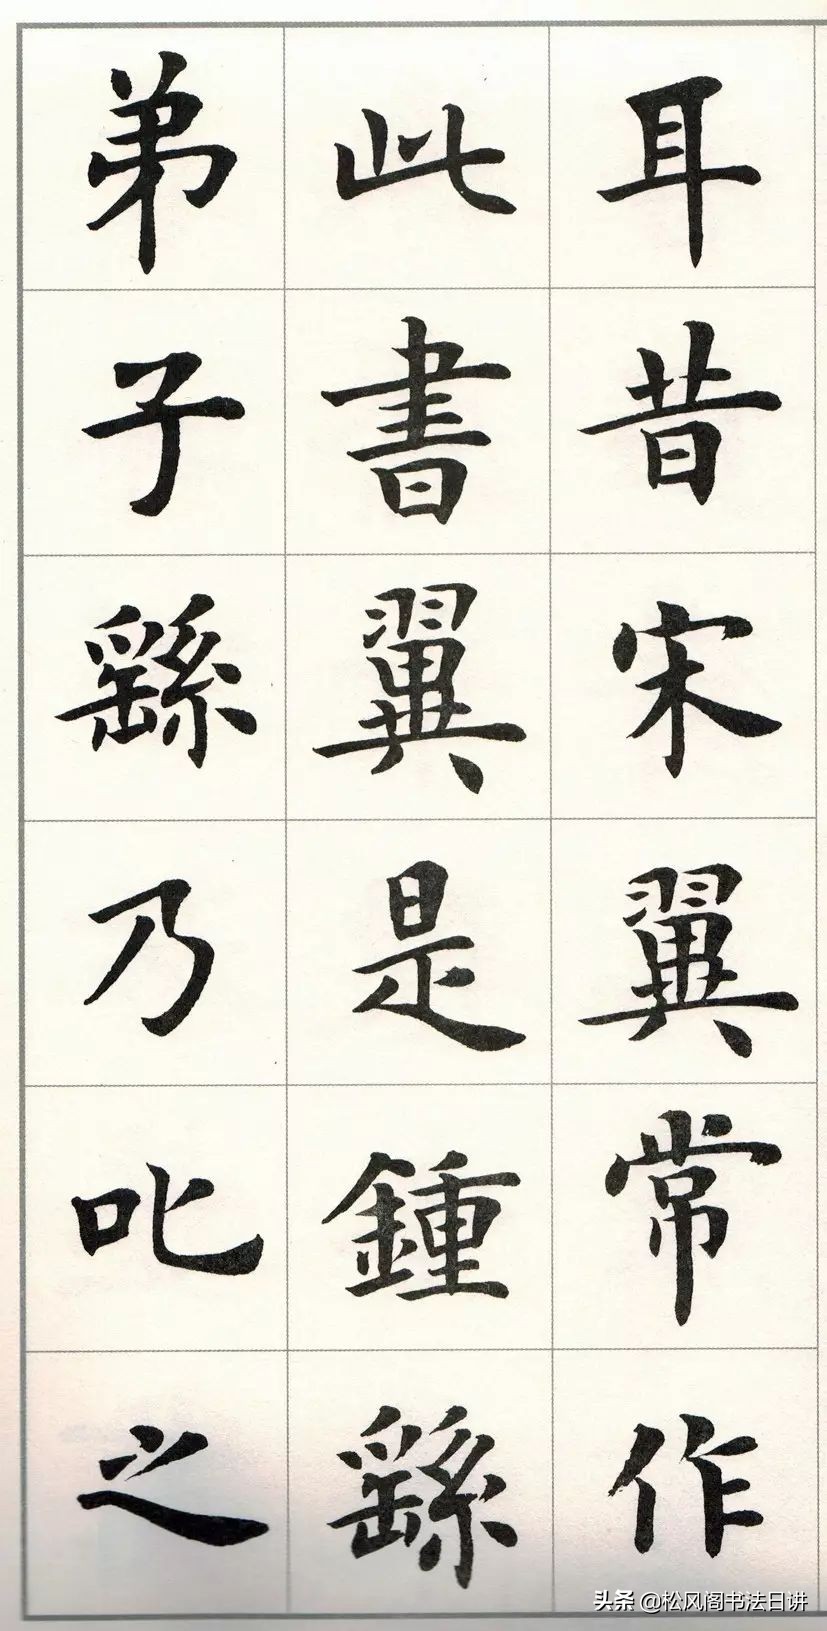 耳昔宋翼常作
此書翼是鍾繇
弟子繇乃叱之
头条 @松风阁书法日讲